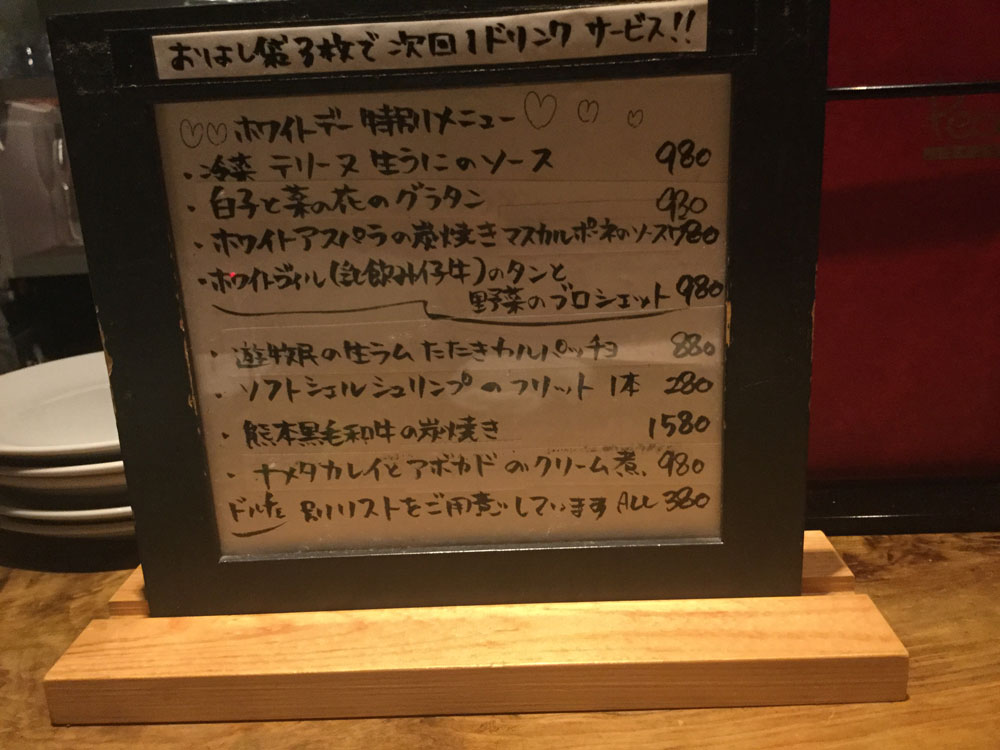 おはし袋3枚で次回1ドリンクサービス!!
ホワイトデー特別メニュー
・冷菜 テリーヌ 生うにのソース 980
・白子と菜の花のグラタン 930
・ホワイトアスパラの炭焼きマスカルポーネのソース 780
・ホワイトヴィル(乳飲み仔牛)のタンと
野菜のブロシェット 980
・遊牧民の生ラム たたきカルパッチョ 880
・ソフトシェルシュリンプのフリット 1本 280
・熊本黒毛和牛の炭焼き 1580
・ナメタカレイとアボカドのクリーム煮 980
別リストをご用意しています ALL 380